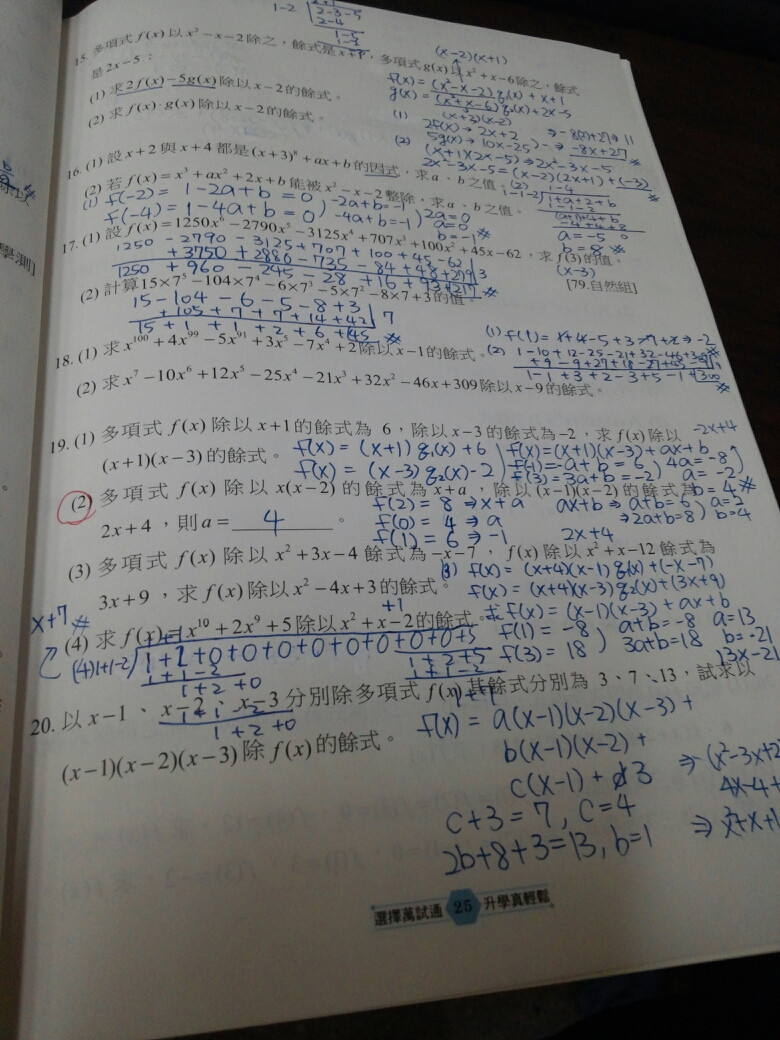 1-2
2-3-5
2-4
1-5
15. 多項式f(x)以x²－x－2除之，餘式是x+1，多項式g(x)以x²+x－6除之，餘式
是2x－5：
(x-2)(x+1)
f(x) = (x²-x-2)q₁(x) + x+1
g(x) = (x²+x-6)q₂(x) + 2x-5
(x+3)(x-2)
(1) 求2f(x)－5g(x)除以x－2的餘式。
(1) 2f(x) → 2x+2
5g(x) → 10x-25
⇒ -8x+27
(2) 求f(x)·g(x)除以x－2的餘式。
(2) (x+1)(2x-5) ⇒ 2x²-3x-5
2x²-3x-5 = (x-2)(2x+1)+(-3)
16. (1) 設x+2與x+4都是(x+3)⁸+ax+b的因式，求a、b之值。
(2) 若f(x)=x³+ax²+2x+b能被x²－x－2整除，求a、b之值。
(1) f(-2) = 1-2a+b = 0
f(-4) = 1-4a+b = 0
-2a+b=-1
-4a+b=-1
2a=0
a=0
b=-1
a=-5
b=8
17. (1) 設f(x)=1250x⁶－2790x⁵－3125x⁴+707x³+100x²+45x－62，求f(3)的值。
[79.自然組]
1250 -2790 -3125 +707 +100 +45 -62
+3750 +2880 -735 -84 +48 +279 3
1250 +960 -245 -28 +16 +93 +217
(x-3)
(2) 計算15×7⁵－104×7⁴－6×7³－5×7²－8×7+3的值。
15 -104 -6 -5 -8 +3
+105 +7 +7 +14 +42 7
15 +1 +1 +2 +6 +45
18. (1) 求x¹⁰⁰+4x⁹⁹－5x⁹¹+3x⁵－7x⁴+2除以x－1的餘式。
(1) f(1) = 1+4-5+3-7+2 ⇒ -2
(2) 求x⁷－10x⁶+12x⁵－25x⁴－21x³+32x²－46x+309除以x－9的餘式。
(2) 1-10+12-25-21+32-46+309
+9-9+27+18-27+45-9
1-1+3+2-3+5-1+300
19. (1) 多項式f(x)除以x+1的餘式為6，除以x－3的餘式為－2，求f(x)除以
(x+1)(x－3)的餘式。
-2x+4
f(x) = (x+1)q₁(x)+6
f(x) = (x-3)q₂(x)-2
f(x)=(x+1)(x-3)+ax+b
f(-1)=-a+b=6
f(3)=3a+b=-2
4a=-8
a=-2
b=4
(2) 多項式f(x)除以x(x－2)的餘式為x+a，除以(x－1)(x－2)的餘式為
2x+4，則a= 4 。
f(2) = 8 ⇒ x+a
f(0) = 4 ⇒ a
f(1) = 6 ⇒ -1
ax+b ⇒ a+b=6
⇒ 2a+b=8
a=2
b=4
2x+4
(3) 多項式f(x)除以x²+3x－4餘式為－x－7，f(x)除以x²+x－12餘式為
3x+9，求f(x)除以x²－4x+3的餘式。
(3) f(x) = (x+4)(x-1)q₁(x)+(-x-7)
f(x) = (x+4)(x-3)q₂(x)+(3x+9)
求f(x) = (x-1)(x-3)+ax+b
f(1) = -8
f(3) = 18
a+b=-8
3a+b=18
a=13
b=-21
13x-21
x+7
(4) 求f(x)=x¹⁰+2x⁹+5除以x²+x－2的餘式。
(4) 1+1-2
1+2+0+0+0+0+0+0+0+0+5
1+1-2
1+2+0
1+1-2
1+2+0
1+2+5
1+1-2
20. 以x－1、x－2、x－3分別除多項式f(x)其餘式分別為3、7、13，試求以
(x－1)(x－2)(x－3)除f(x)的餘式。
f(x) = a(x-1)(x-2)(x-3)+
b(x-1)(x-2)+
c(x-1)+3
c+3=7, c=4
2b+8+3=13, b=1
⇒ (x²-3x+2
4x-4+
⇒ x²+x+1
選擇萬試通 25 升學真輕鬆
學測]